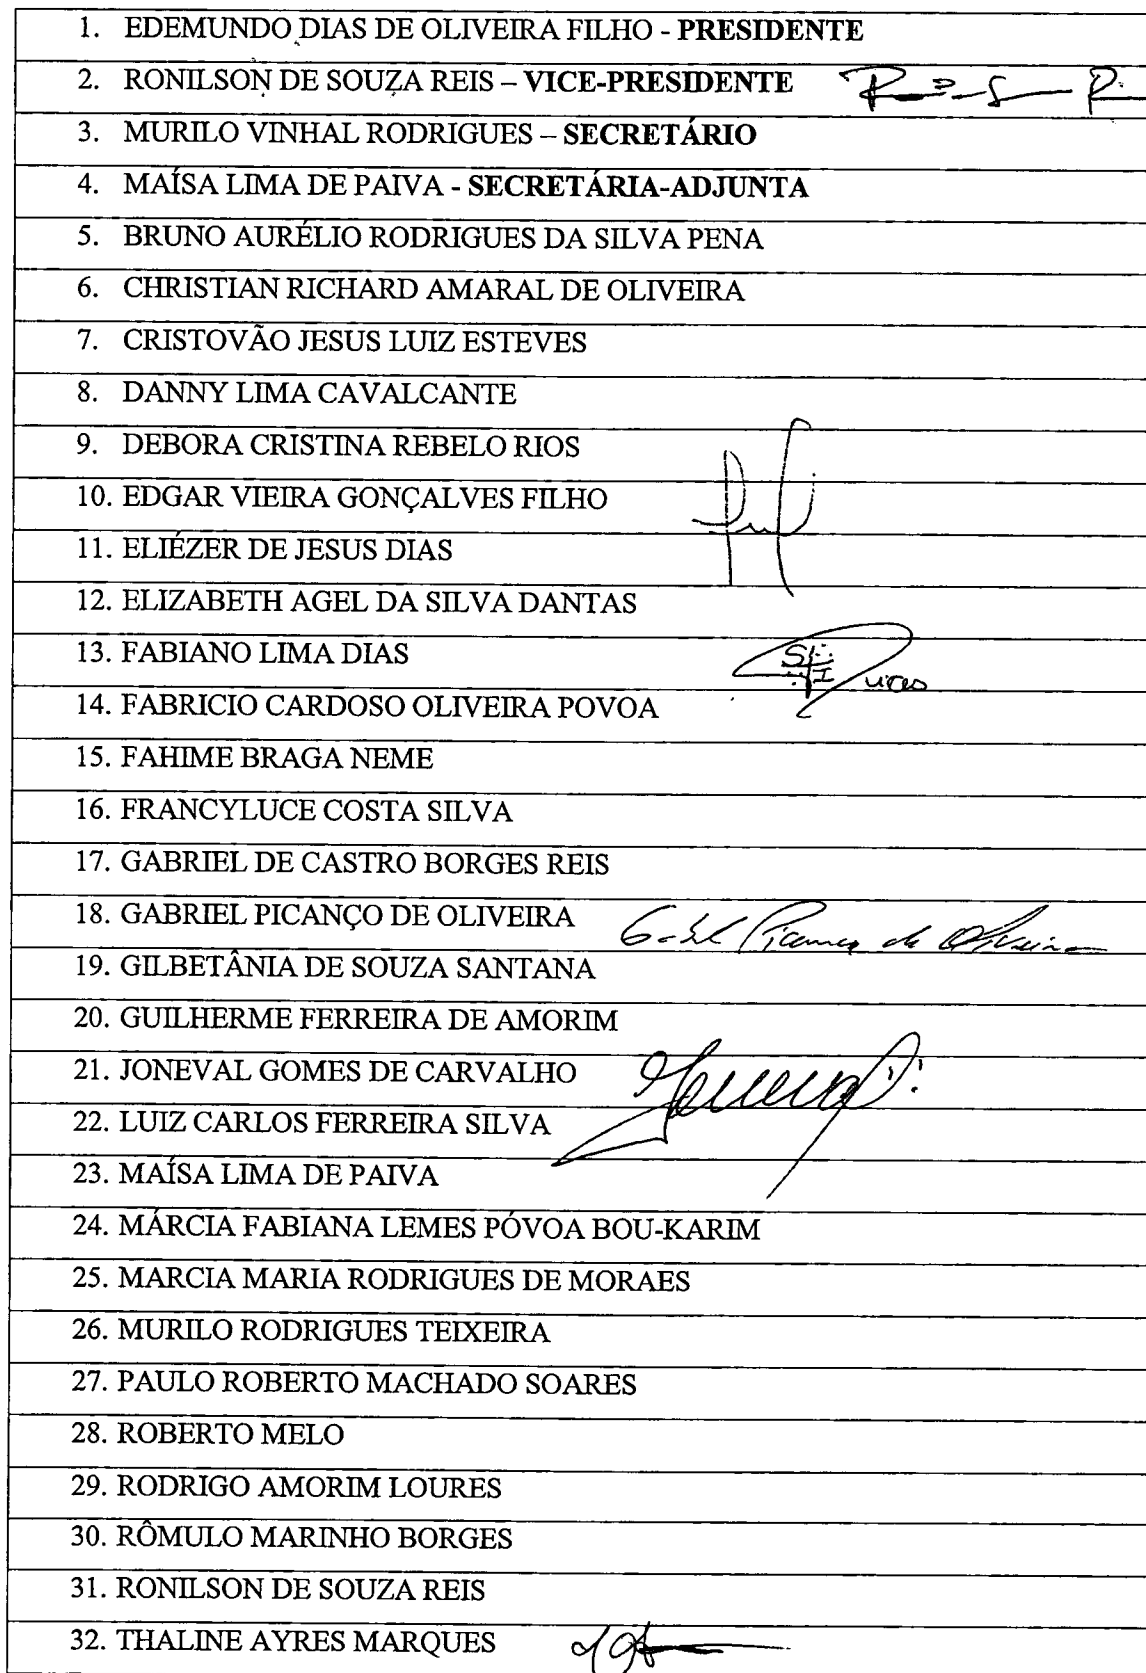 1. EDEMUNDO DIAS DE OLIVEIRA FILHO - PRESIDENTE
2. RONILSON DE SOUZA REIS – VICE-PRESIDENTE
3. MURILO VINHAL RODRIGUES – SECRETÁRIO
4. MAÍSA LIMA DE PAIVA - SECRETÁRIA-ADJUNTA
5. BRUNO AURÉLIO RODRIGUES DA SILVA PENA
6. CHRISTIAN RICHARD AMARAL DE OLIVEIRA
7. CRISTOVÃO JESUS LUIZ ESTEVES
8. DANNY LIMA CAVALCANTE
9. DEBORA CRISTINA REBELO RIOS
10. EDGAR VIEIRA GONÇALVES FILHO
11. ELIÉZER DE JESUS DIAS
12. ELIZABETH AGEL DA SILVA DANTAS
13. FABIANO LIMA DIAS
14. FABRICIO CARDOSO OLIVEIRA POVOA
15. FAHIME BRAGA NEME
16. FRANCYLUCE COSTA SILVA
17. GABRIEL DE CASTRO BORGES REIS
18. GABRIEL PICANÇO DE OLIVEIRA
19. GILBETÂNIA DE SOUZA SANTANA
20. GUILHERME FERREIRA DE AMORIM
21. JONEVAL GOMES DE CARVALHO
22. LUIZ CARLOS FERREIRA SILVA
23. MAÍSA LIMA DE PAIVA
24. MÁRCIA FABIANA LEMES PÓVOA BOU-KARIM
25. MARCIA MARIA RODRIGUES DE MORAES
26. MURILO RODRIGUES TEIXEIRA
27. PAULO ROBERTO MACHADO SOARES
28. ROBERTO MELO
29. RODRIGO AMORIM LOURES
30. RÔMULO MARINHO BORGES
31. RONILSON DE SOUZA REIS
32. THALINE AYRES MARQUES